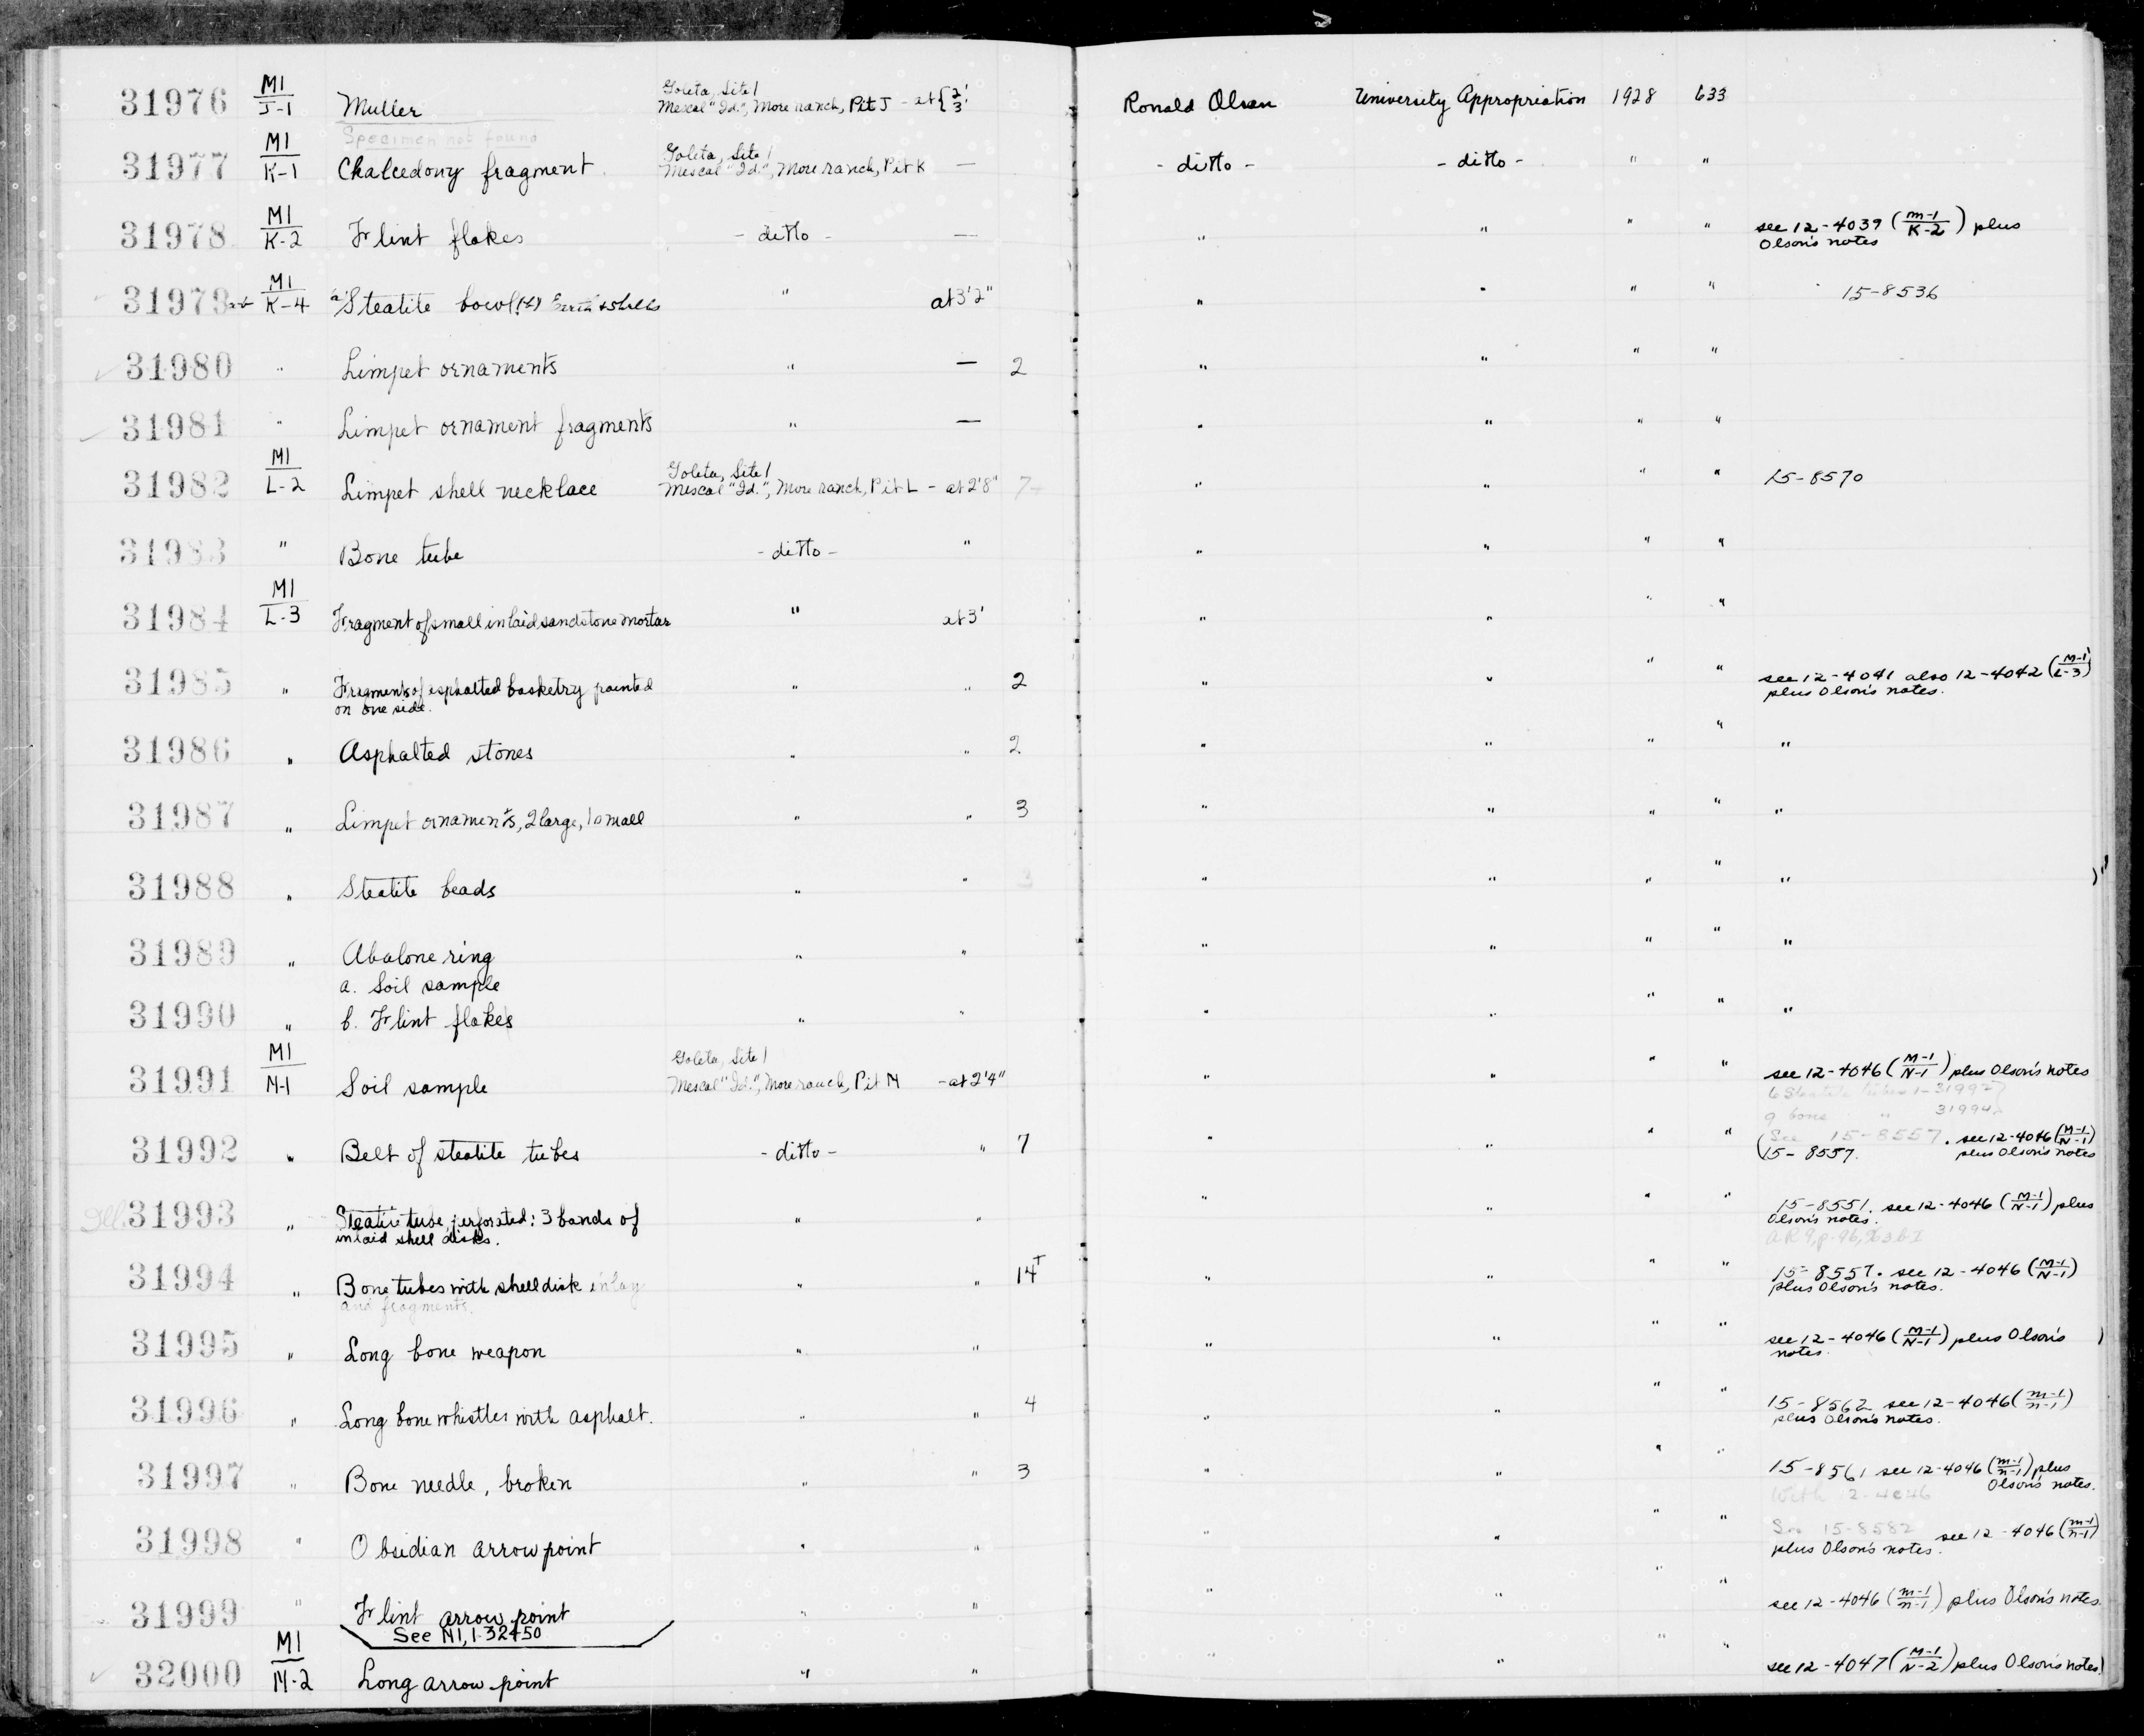 31976 M1/J-1 Muller Goleta, Site 1 Mescal "Id.", More ranch, Pit J - at {2' 3' Ronald Olson University Appropriation 1928 633
Specimen not found
31977 M1/K-1 Chalcedony fragment Goleta, Site 1 Mescal "Id.", More ranch, Pit K — - ditto - - ditto - " "
31978 M1/K-2 Flint flakes - ditto - — " " " " see 12-4039 (M-1/K-2) plus Olson's notes
31979 a-b M1/K-4 a) Steatite bowl (b) Earth & shells " at 3'2" " " " " 15-8536
31980 " Limpet ornaments " — 2 " " " "
31981 " Limpet ornament fragments " — " " " "
31982 M1/L-2 Limpet shell necklace Goleta, Site 1 Mescal "Id.", More ranch, Pit L - at 2'8" 7 " " " " 15-8570
31983 " Bone tube - ditto - " " " " "
31984 M1/L-3 Fragment of small inlaid sandstone mortar " at 3' " " " "
31985 " Fragments of asphalted basketry painted on one side. " " 2 " " " " see 12-4041 also 12-4042 (M-1/L-3) plus Olson's notes.
31986 " Asphalted stones " " 2 " " " " "
31987 " Limpet ornaments, 2 large, 1 small " " 3 " " " " "
31988 " Steatite beads " " 3 " " " " "
31989 " Abalone ring " " " " " " "
a. Soil sample
31990 " b. Flint flakes " " " " " " "
31991 M1/N-1 Soil sample Goleta, Site 1 Mescal "Id.", More ranch, Pit N - at 2'4" " " " " see 12-4046 (M-1/N-1) plus Olson's notes
6 Steatite tubes 1-31992
9 bone " 31994
31992 " Belt of steatite tubes - ditto - " 7 " " " " (See 15-8557. see 12-4046 (M-1/N-1)
15-8557. plus Olson's notes
Ill. 31993 " Steatite tube, perforated; 3 bands of inlaid shell disks. " " " " " " 15-8551. see 12-4046 (M-1/N-1) plus Olson's notes.
31994 " Bone tubes with shell disk inlay and fragments. " " 14 " " " " 15-8557. see 12-4046 (M-1/N-1) plus Olson's notes.
31995 " Long bone weapon " " " " " " see 12-4046 (M-1/N-1) plus Olson's notes.
31996 " Long bone whistles with asphalt. " " 4 " " " " 15-8562 see 12-4046 (m-1/n-1) plus Olson's notes.
31997 " Bone needle, broken " " 3 " " " " 15-8561 see 12-4046 (m-1/n-1) plus Olson's notes.
With 12-4046
31998 " Obsidian arrow point " " " " " " See 15-8582 see 12-4046 (m-1/n-1) plus Olson's notes.
31999 " Flint arrow point " " " " " " see 12-4046 (m-1/n-1) plus Olson's notes.
See N1, 1-32450
32000 M1/N-2 Long arrow point " " " " " " see 12-4047 (M-1/N-2) plus Olson's notes.